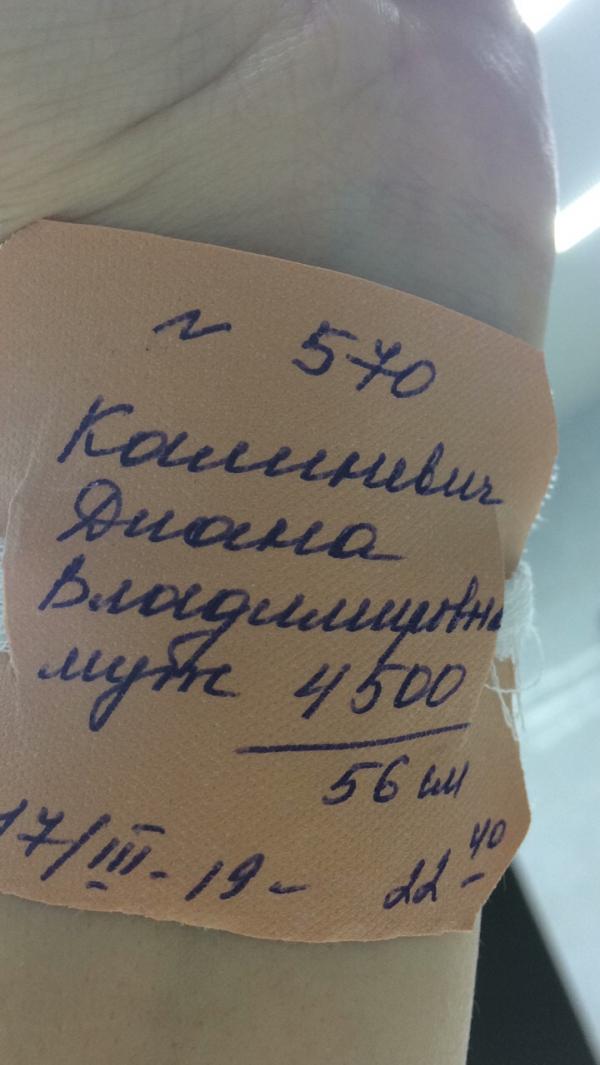 № 570
Калиневич
Диана
Владимировна
муж 4500
56 см
17/III-19г 22-40